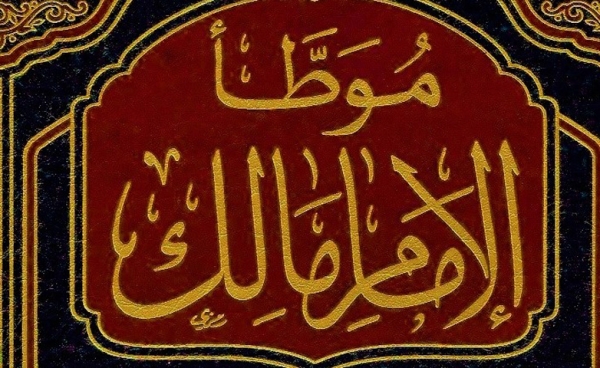 مُوَطَّأ
الإمَامِ مَالِك